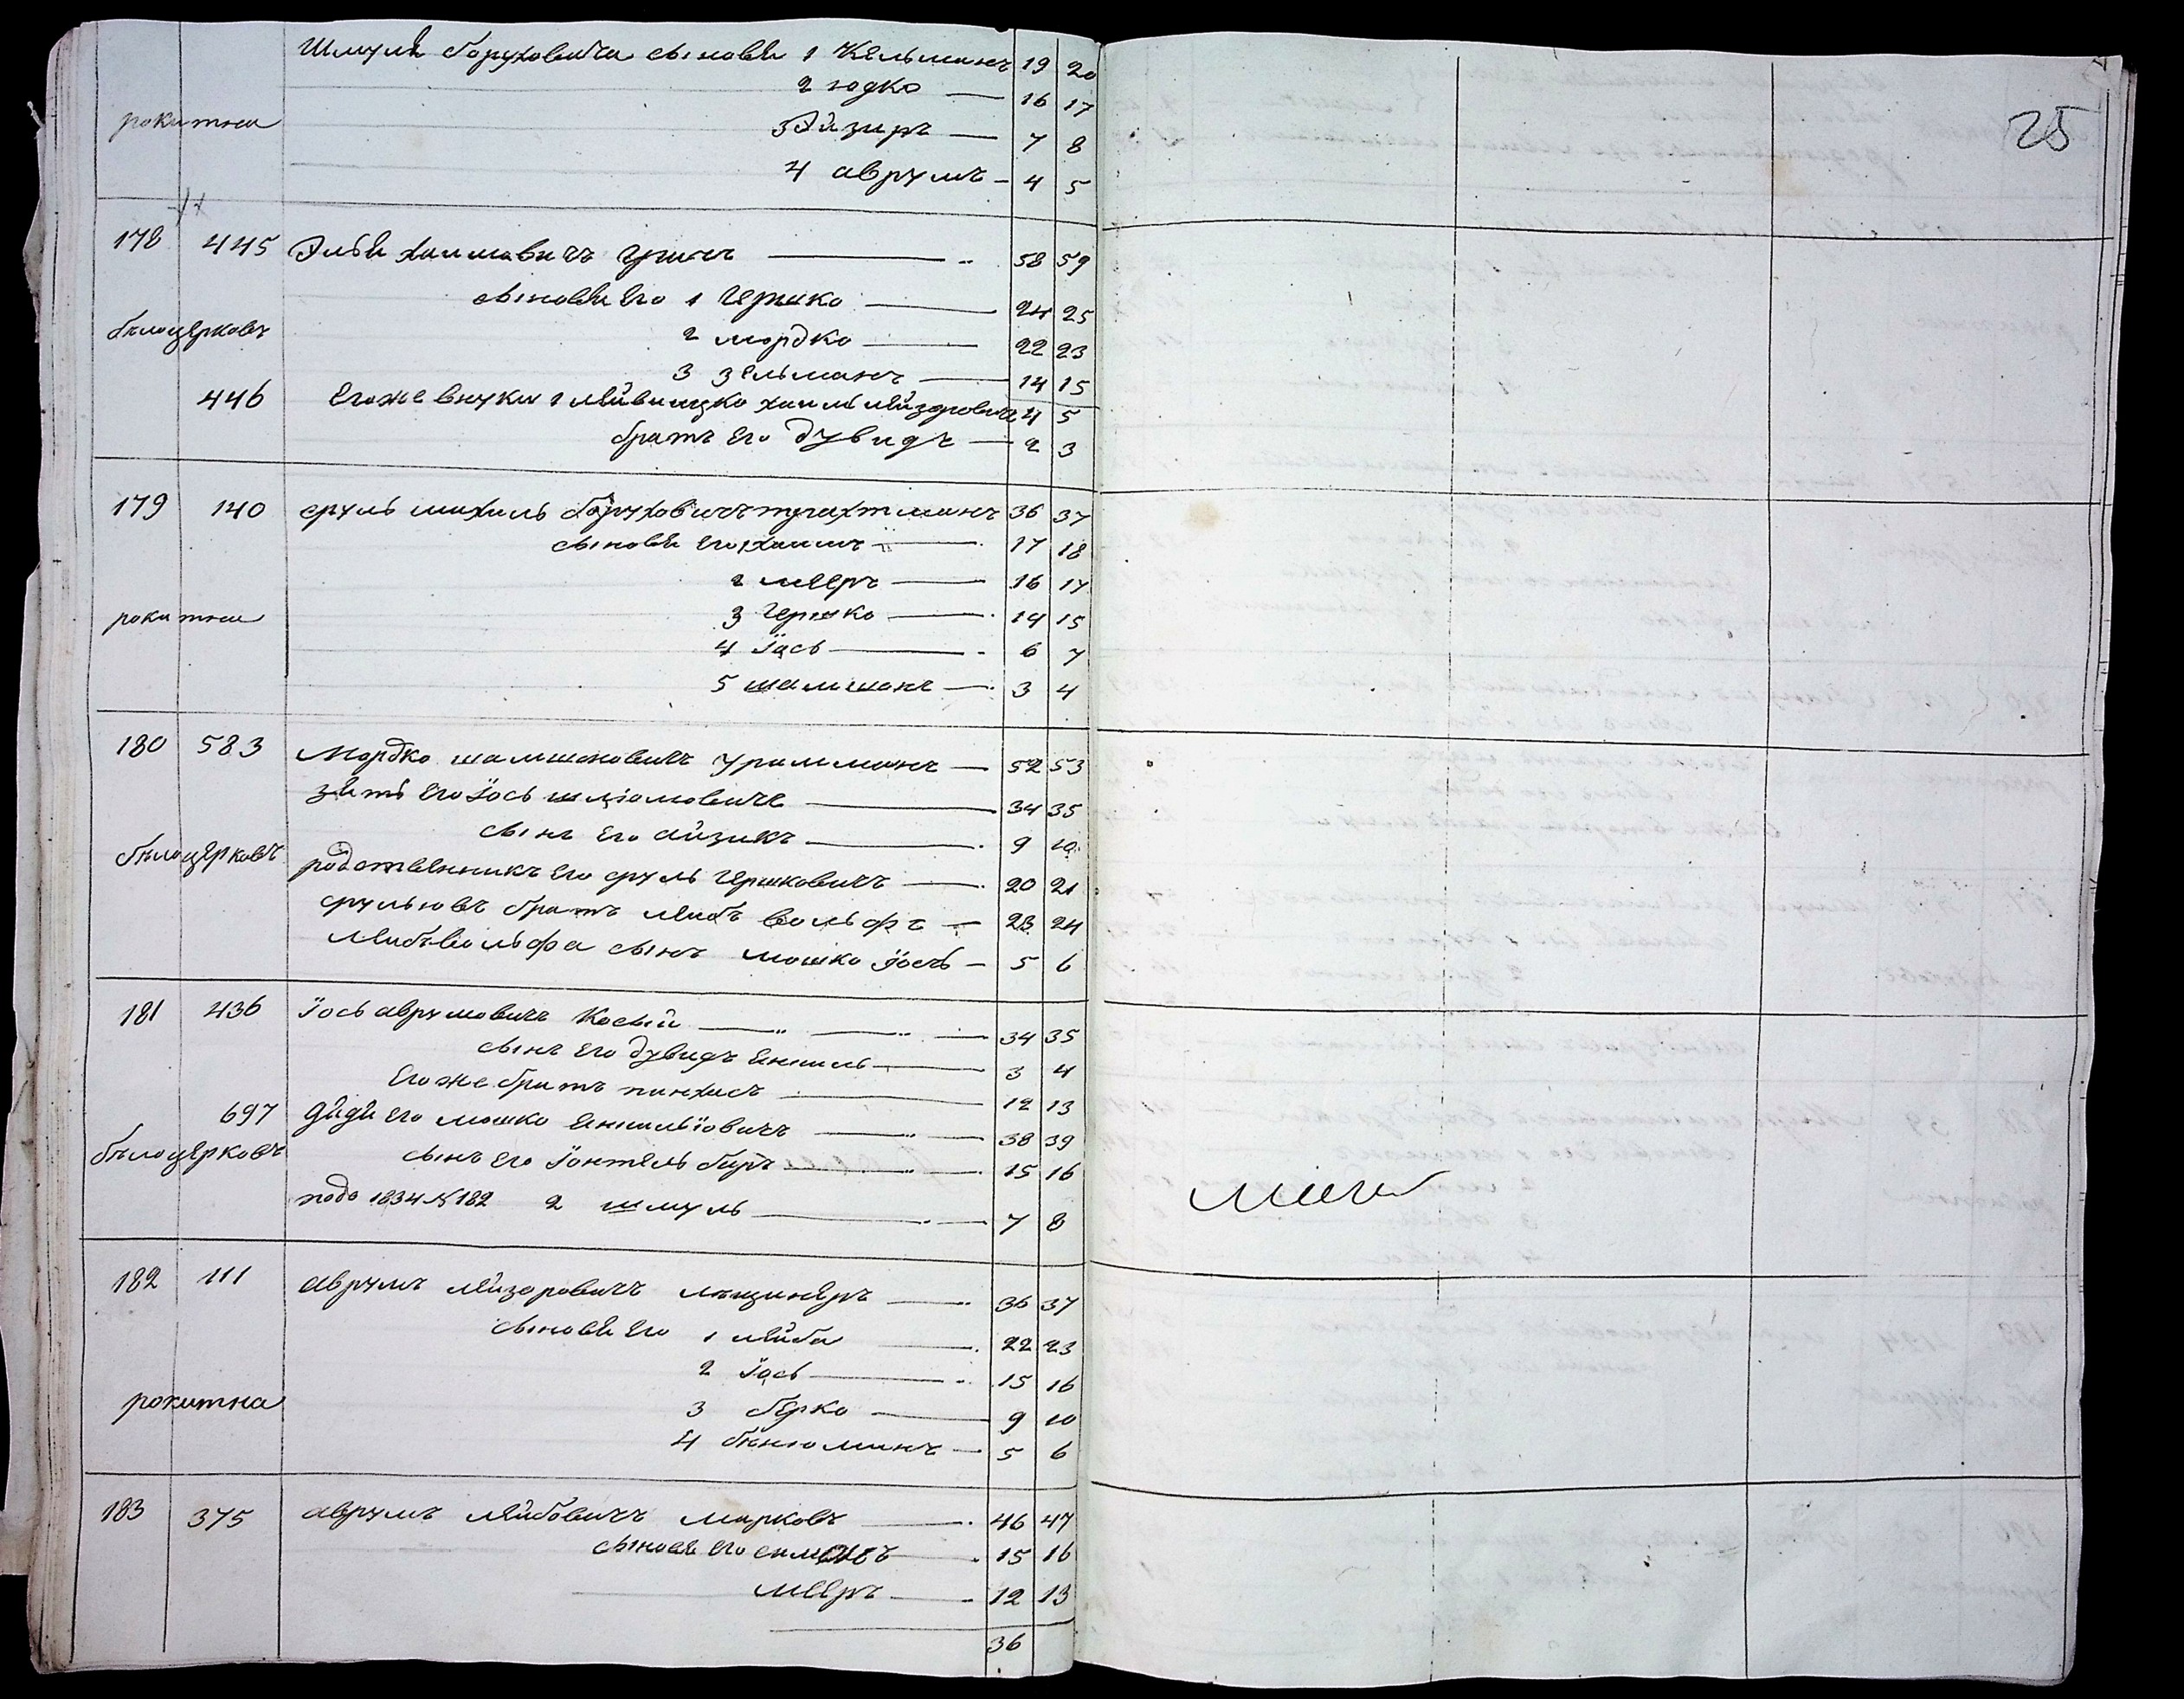 25
Шмуля Боруховича сыновья 1 Кельманъ 19 20
2 Іодко — 16 17
рокитна 3 Эйзиръ — 7 8
4 аврумъ — 4 5
178 445 Эльи хаимовичъ — 58 59
сыновья его 1 Гершко — 24 25
бѣлоцерковъ
2 мордко — 22 23
3 зельманъ — 14 15
446 Егоже внуки 1 хаимъ 4 5
братъ его Дувидъ — 2 3
179 140 сруль михиль Боруховичъ трахтманъ 36 37
сыновья его хаимъ — 17 18
2 мееръ — 16 17
рокитна 3 Гершко — 14 15
4 Іось — 6 7
5 шамшонъ — 3 4
180 583 Мордко шамшоновичъ — 52 53
зять его Іось шліомовичъ — 34 35
сынъ его айзикъ — 9 10
бѣлоцерковъ родственникъ его сруль Гершковичъ — 20 21
срульовъ братъ лейбъ вольфъ — 23 24
лейбъвольфа сынъ мошко Іось — 5 6
181 436 Іось аврумовичъ Косый — 34 35
сынъ его Дувидъ Янкель — 3 4
Егоже братъ пинхасъ 12 13
697 дядя его мошко — 38 39
бѣлоцерковъ сынъ его беръ — 15 16
подо 1834 № 182 2 шмуль — 7 8
182 111 аврумъ лейзоровичъ — 36 37
сыновья его 1 лейба — 22 23
2 Іось — 15 16
рокитна 3 берко — 9 10
4 бѣнюминъ — 5 6
183 375 аврумъ лейбовичъ марковъ — 46 47
сыновя его — 15 16
мееръ — 12 13
36